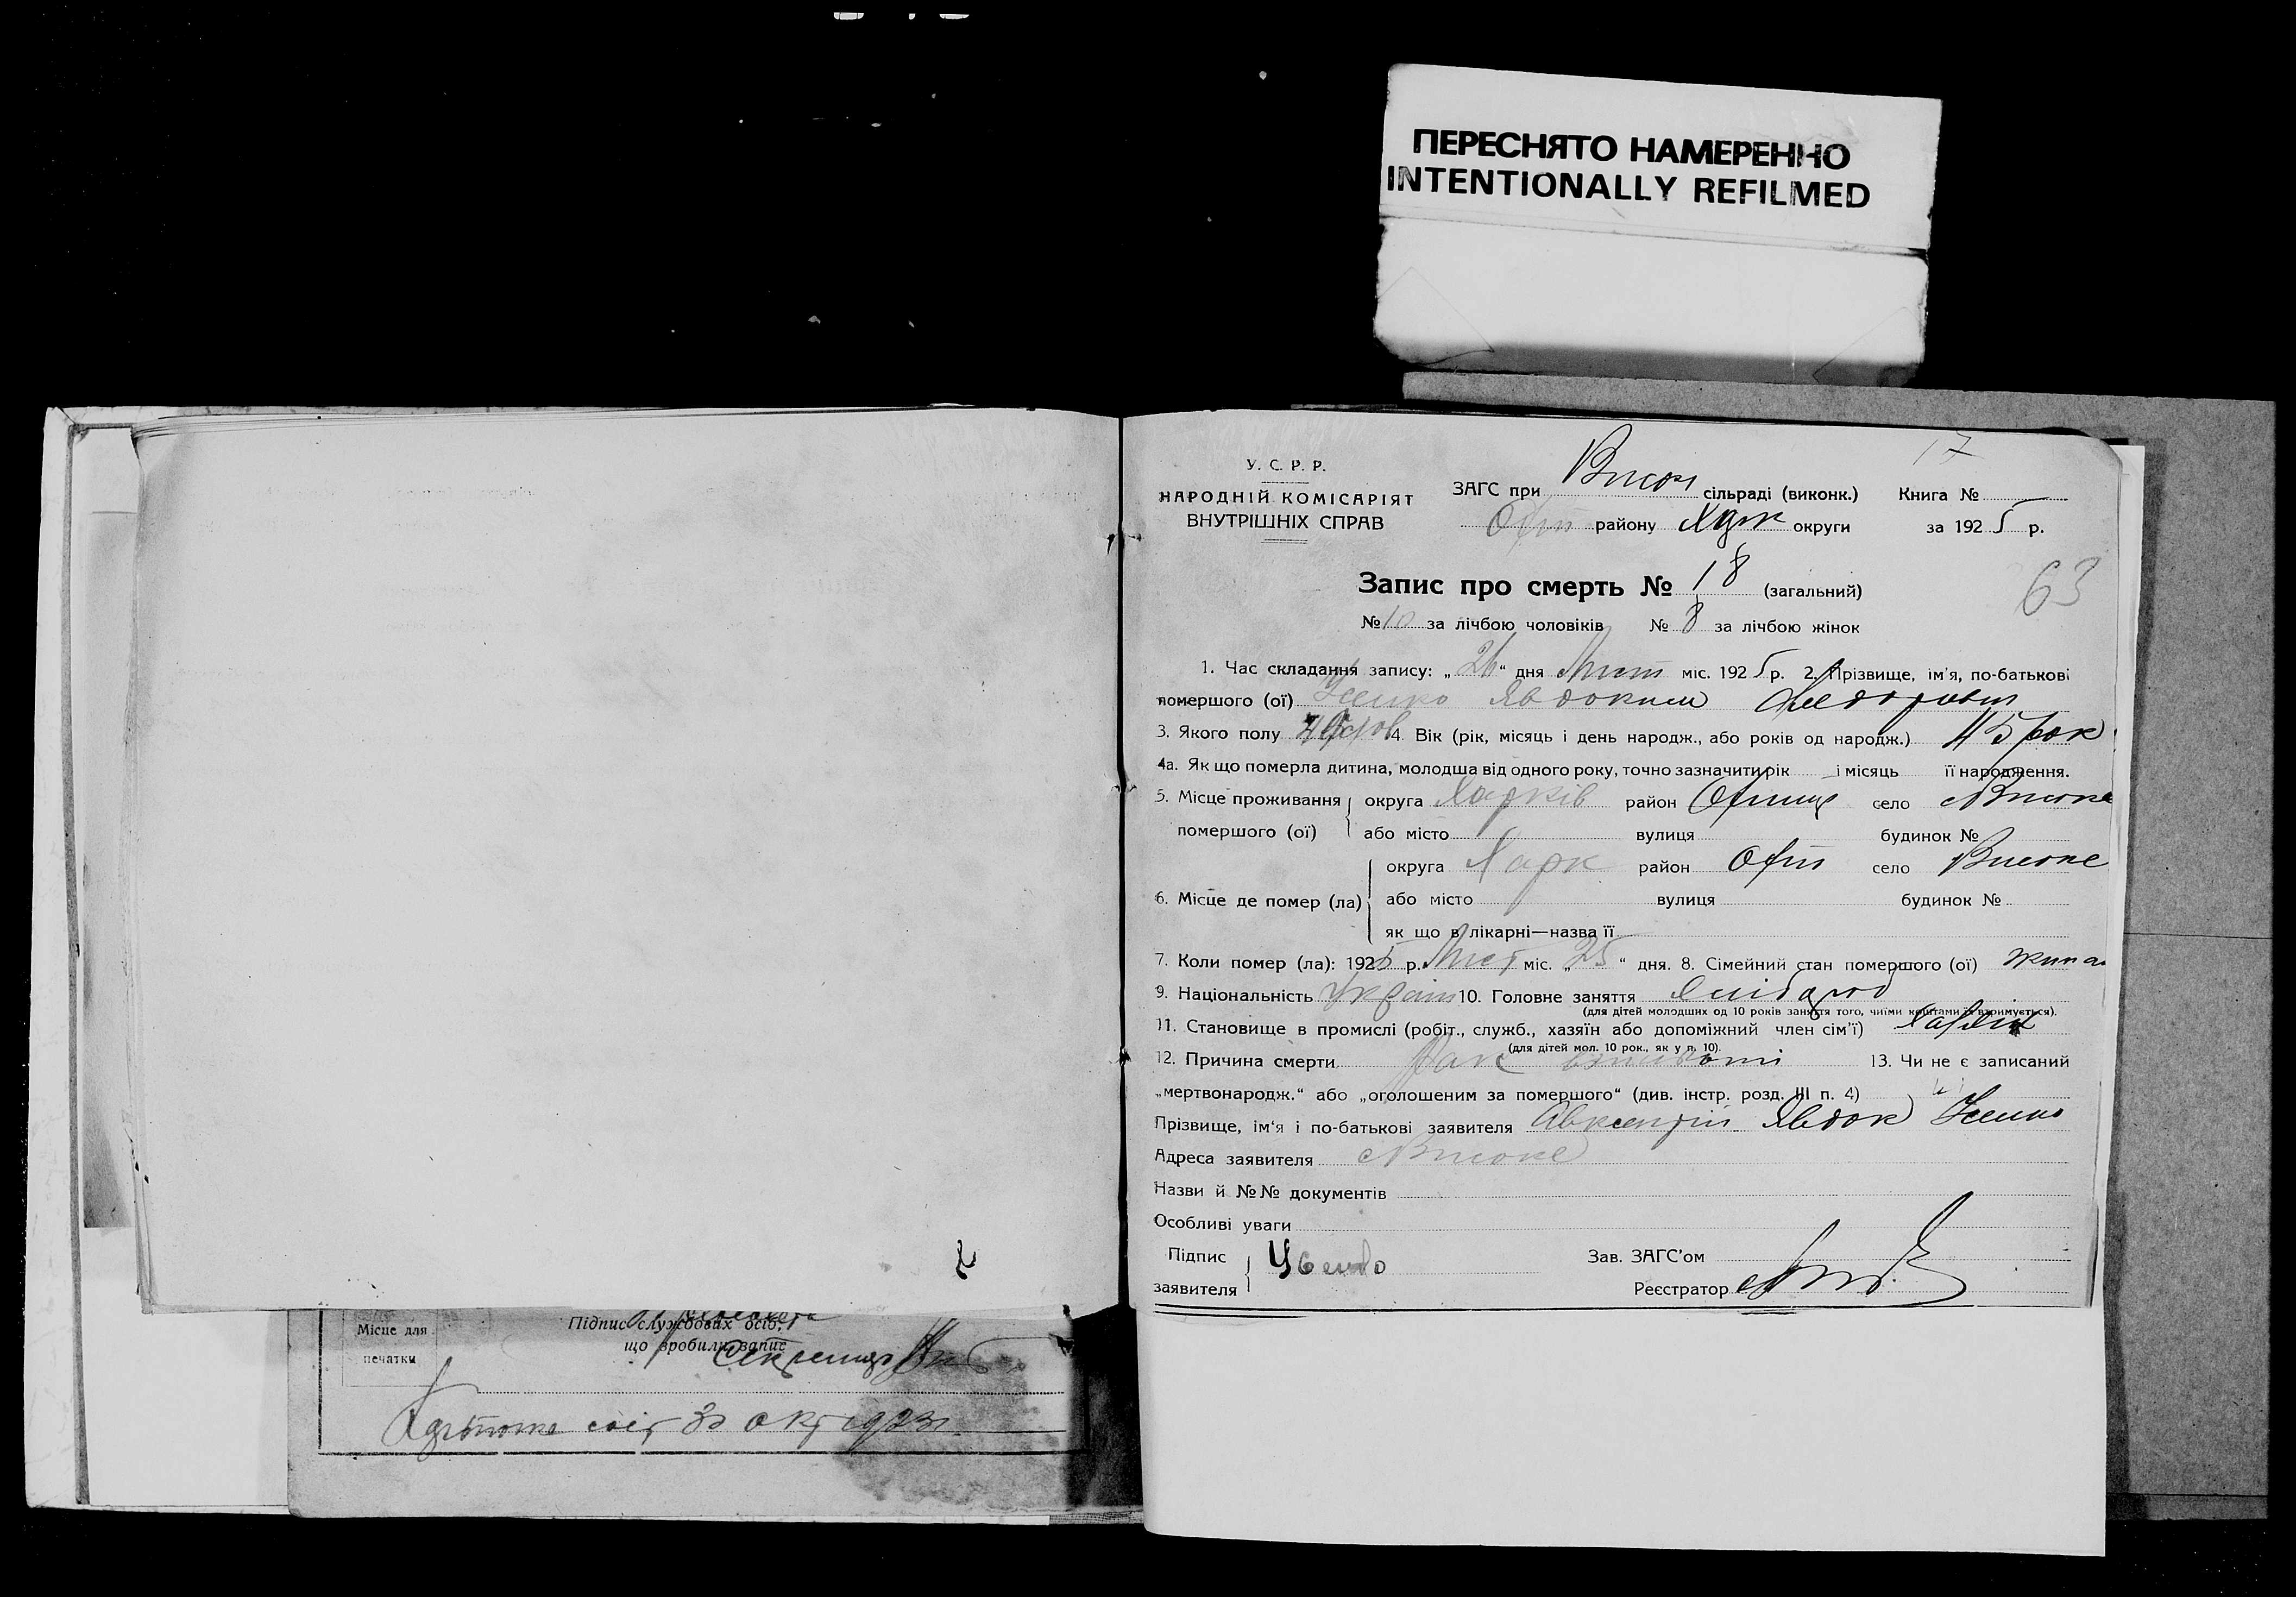 ПЕРЕСНЯТО НАМЕРЕННО
INTENTIONALLY REFILMED
17
У. С. Р. Р.
НАРОДНІЙ КОМІСАРІЯТ
ВНУТРІШНІХ СПРАВ
ЗАГС при Висок сільраді (виконк.) Книга №
району Харк округи за 1925 р.
63
Запис про смерть № 18 (загальний)
№ 10 за лічбою чоловіків № 8 за лічбою жінок
1. Час складання запису: „26“ дня міс. 1925 р. 2. Прізвище, ім'я, по-батькові
помершого (ої) Усенко Явдоким Федорович
3. Якого полу 4. Вік (рік, місяць і день народж., або років од народж.) 45 рок
4а. Як що померла дитина, молодша від одного року, точно зазначити рік і місяць її народження.
5. Місце проживання помершого (ої) округа Харків район село Високе
або місто вулиця будинок №
6. Місце де помер (ла) округа Харк район село Високе
або місто вулиця будинок №
як що в лікарні—назва її
7. Коли помер (ла): 1925 р. міс. „25“ дня. 8. Сімейний стан помершого (ої)
9. Національність Україн 10. Головне заняття Хлібороб
(для дітей молодших од 10 років заняття того, чиїми коштами їх утримується).
11. Становище в промислі (робіт., служб., хазяїн або допоміжний член сім'ї) Хазяїн
(для дітей мол. 10 рок., як у п. 10).
12. Причина смерти Рак 13. Чи не є записаний
„мертвонародж.“ або „оголошеним за помершого“ (див. інстр. розд. III п. 4)
Прізвище, ім'я і по-батькові заявителя Авксентій Явдок Усенко
Адреса заявителя с Високе
Назви й №№ документів
Особливі уваги
Підпис заявителя Усенко
Зав. ЗАГС'ом
Реєстратор
Місце для печатки
Підпис службових осіб,
що зробили запис
Секретар
30 окт 1923 г.